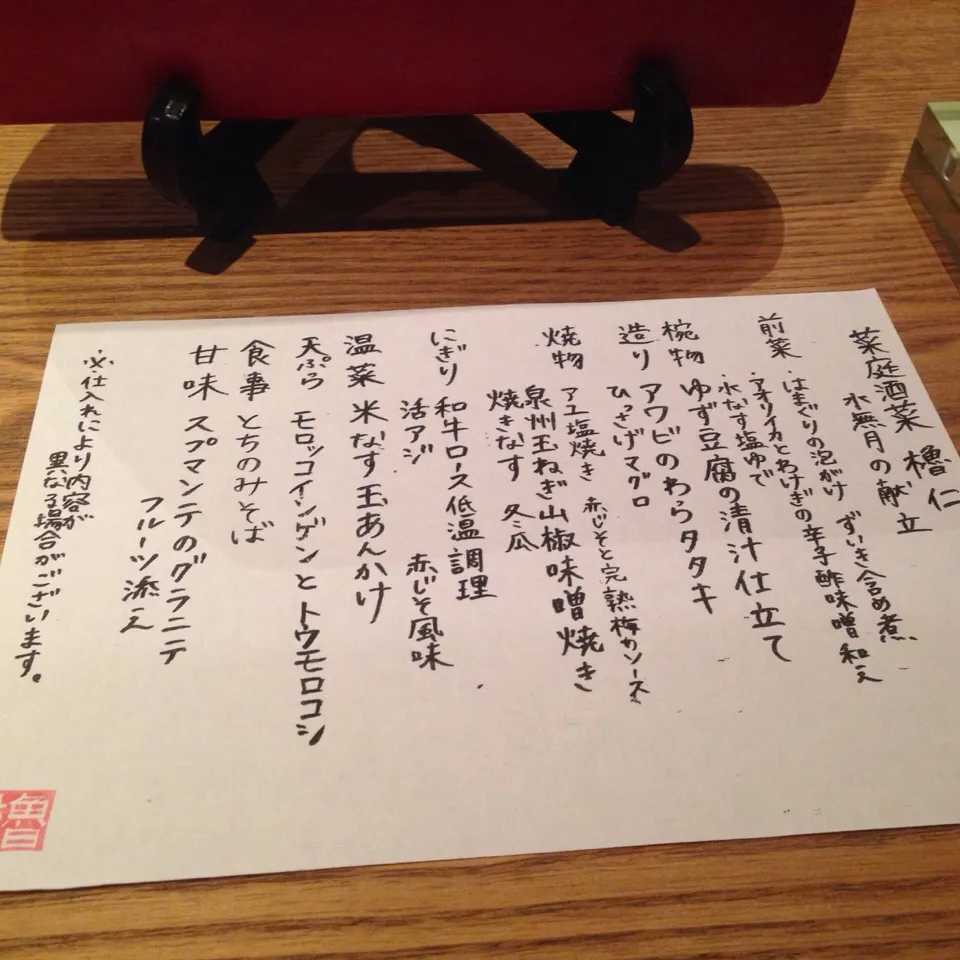 菜庭酒菜 櫓仁
水無月の献立
前菜 ・はまぐりの泡がけ ずいき含め煮
・アオリイカとわけぎの辛子酢味噌和え
・水なす塩ゆで
椀物 ゆず豆腐の清汁仕立て
造り アワビのわらタタキ
ひっさげマグロ
焼物 アユ塩焼き 赤じそと完熟梅のソース
泉州玉ねぎ山椒味噌焼き
焼きなす 冬瓜
にぎり 和牛ロース低温調理
活アジ 赤じそ風味
温菜 米なす玉あんかけ
天ぷら モロッコインゲンとトウモロコシ
食事 とちのみそば
甘味 スプマンテのグラニテ
フルーツ添え
※仕入れにより内容が
異なる場合がございます。